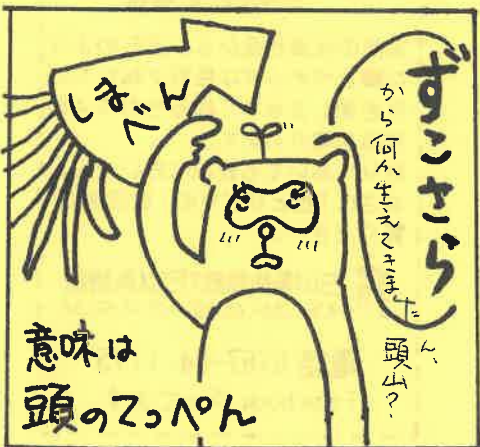 しまべん
ずこさら
から何か生えてきました
ん、頭山？
意味は
頭のてっぺん